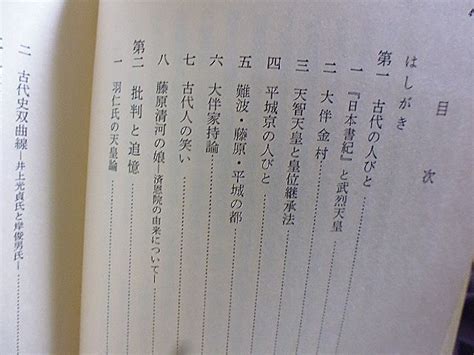 目次
はしがき
第一 古代の人びと
一 『日本書紀』と武烈天皇
二 大伴金村
三 天智天皇と皇位継承法
四 平城京の人びと
五 難波・藤原・平城の都
六 大伴家持論
七 古代人の笑い
八 藤原清河の娘―済恩院の由来について―
第二 批判と追憶
一 羽仁氏の天皇論
二 古代史双曲線―井上光貞氏と岸俊男氏―